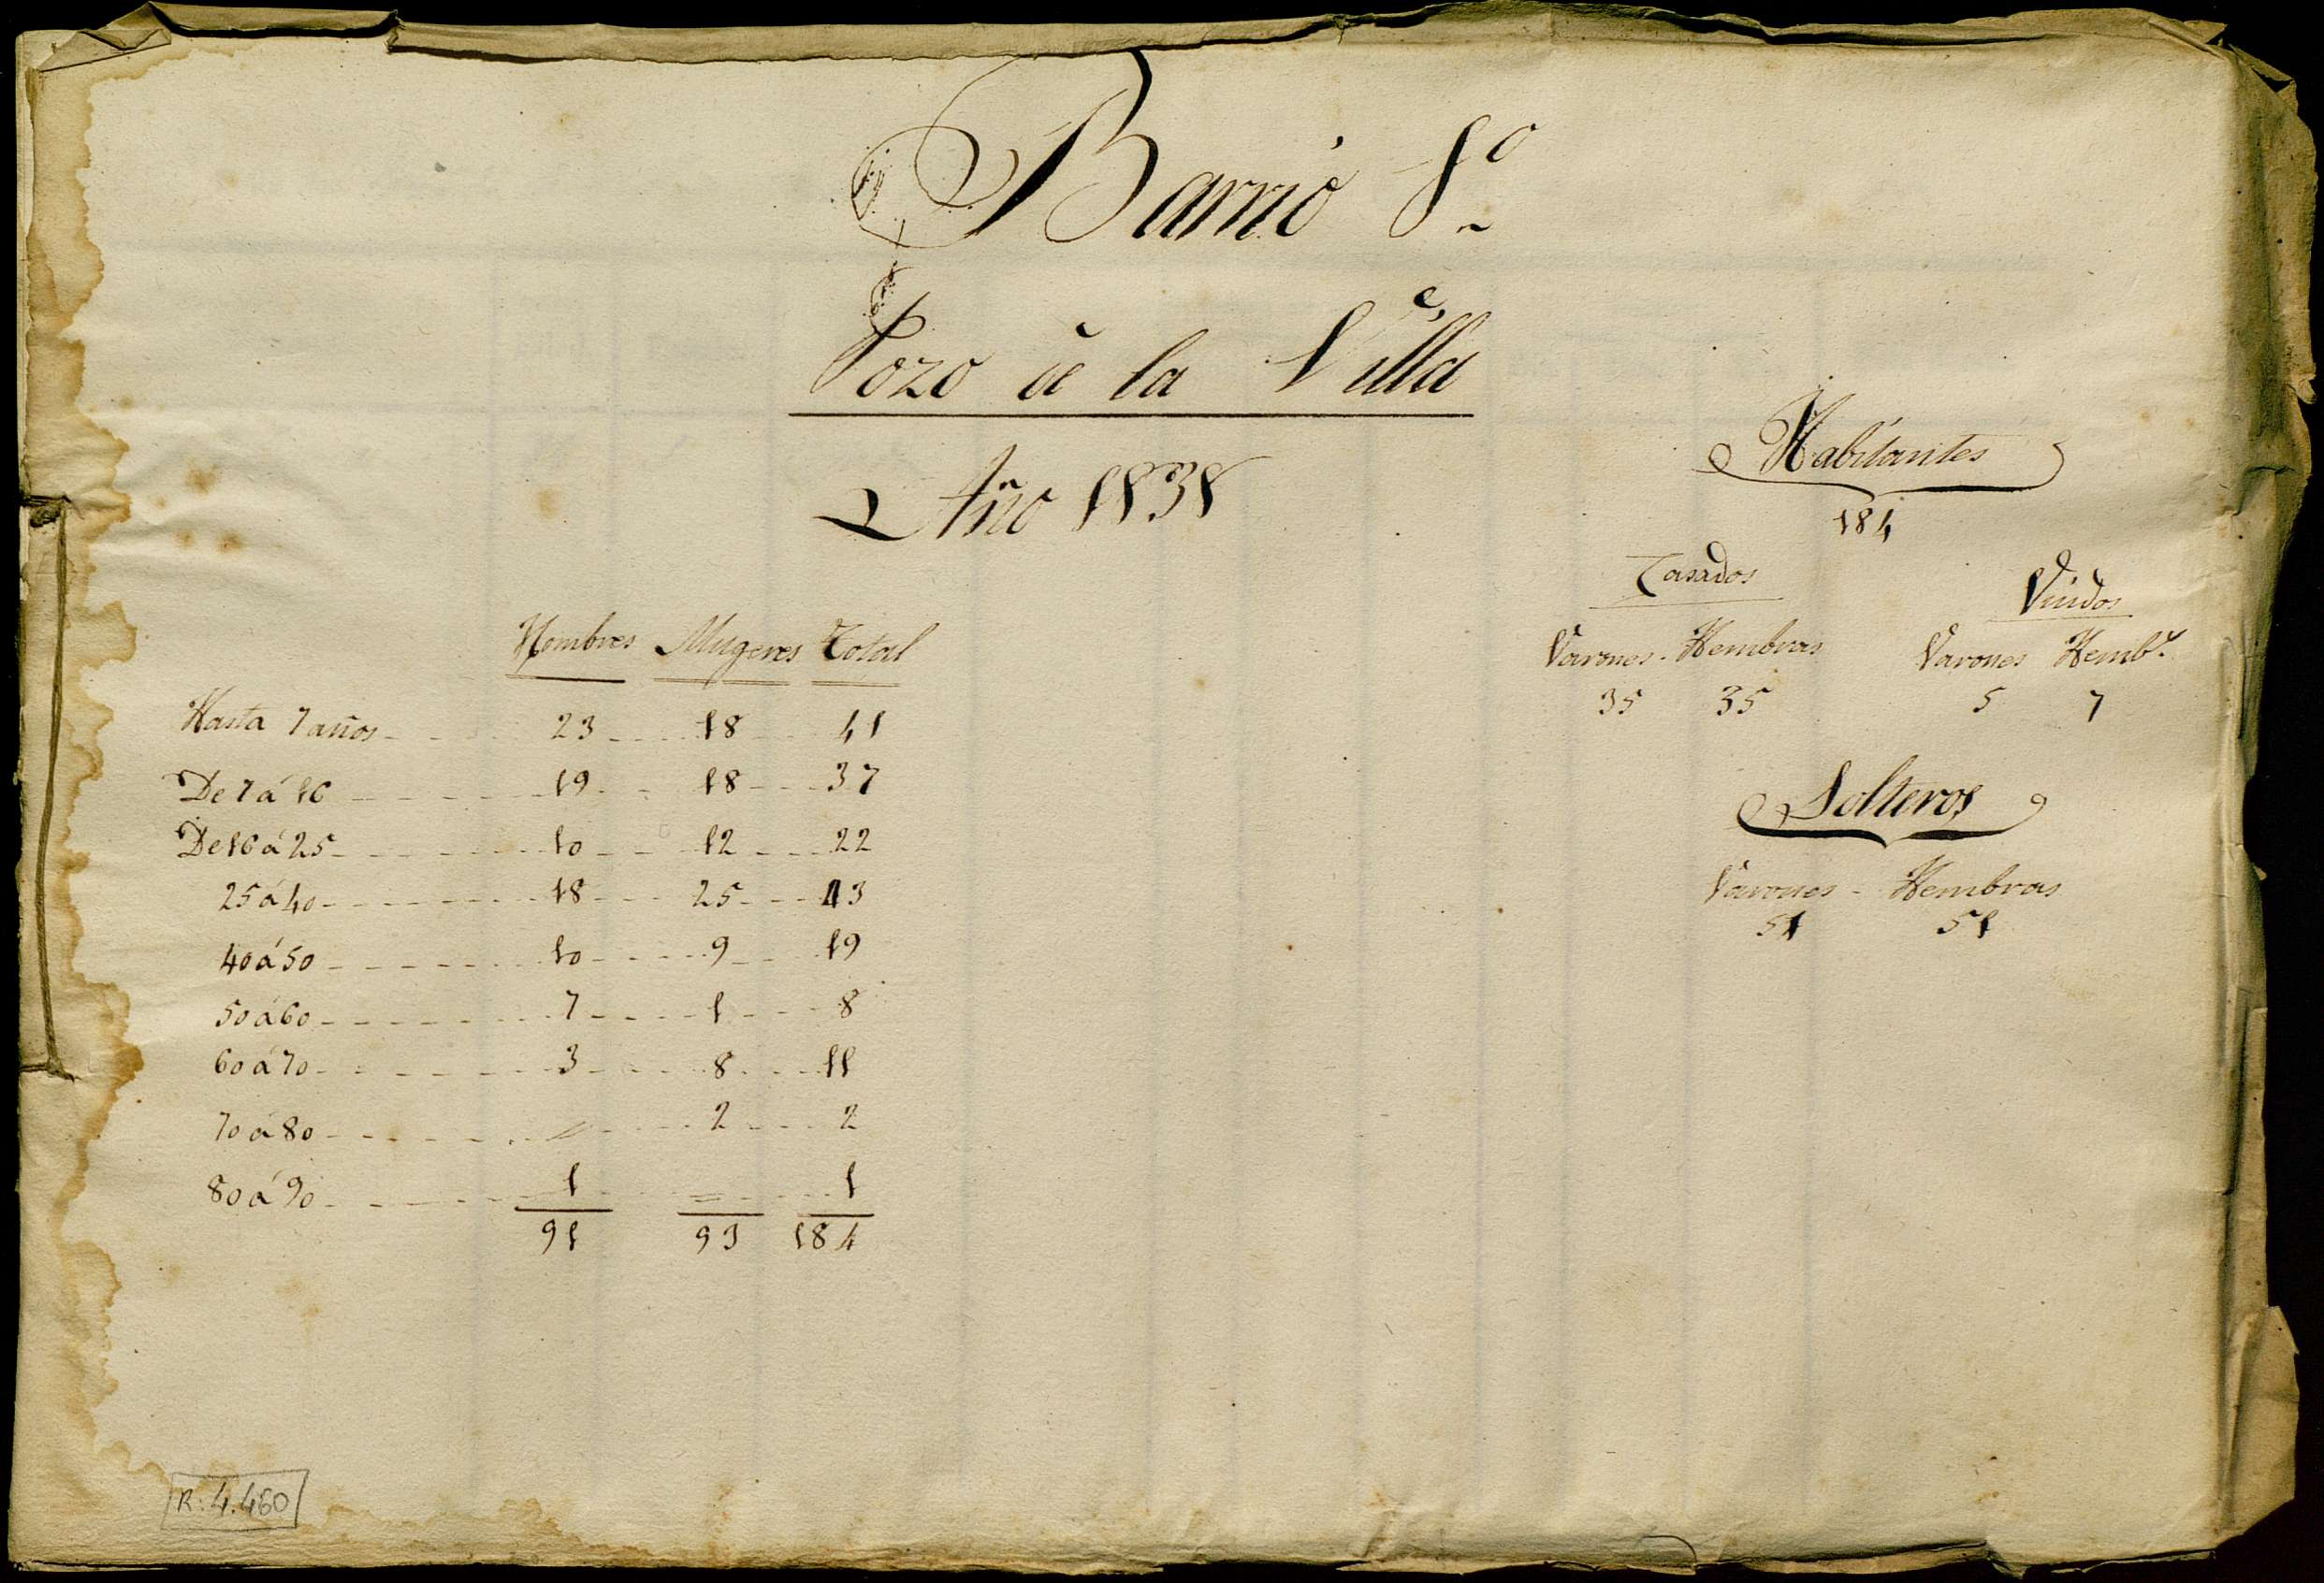 Barrio 1º
Pozo de la Villa
Año 1838
Habitantes
184
Casados
Viudos
Varones - Hembras
Varones Hembˢ
35 35
5 7
Solteros
Varones - Hembras
51 51
Hombres Mugeres Total
Hasta 7 años - - - 23 - - - 18 - - - 41
De 7 á 16 - - - 19 - - - 18 - - - 37
De 16 á 25 - - - 10 - - - 12 - - - 22
25 á 40 - - - 18 - - - 25 - - - 43
40 á 50 - - - 10 - - - 9 - - - 19
50 á 60 - - - 7 - - - 1 - - - 8
60 á 70 - - - 3 - - - 8 - - - 11
70 á 80 - - - " - - - 2 - - - 2
80 á 90 - - - 1 - - - = - - - 1
91 93 184
R: 4.460